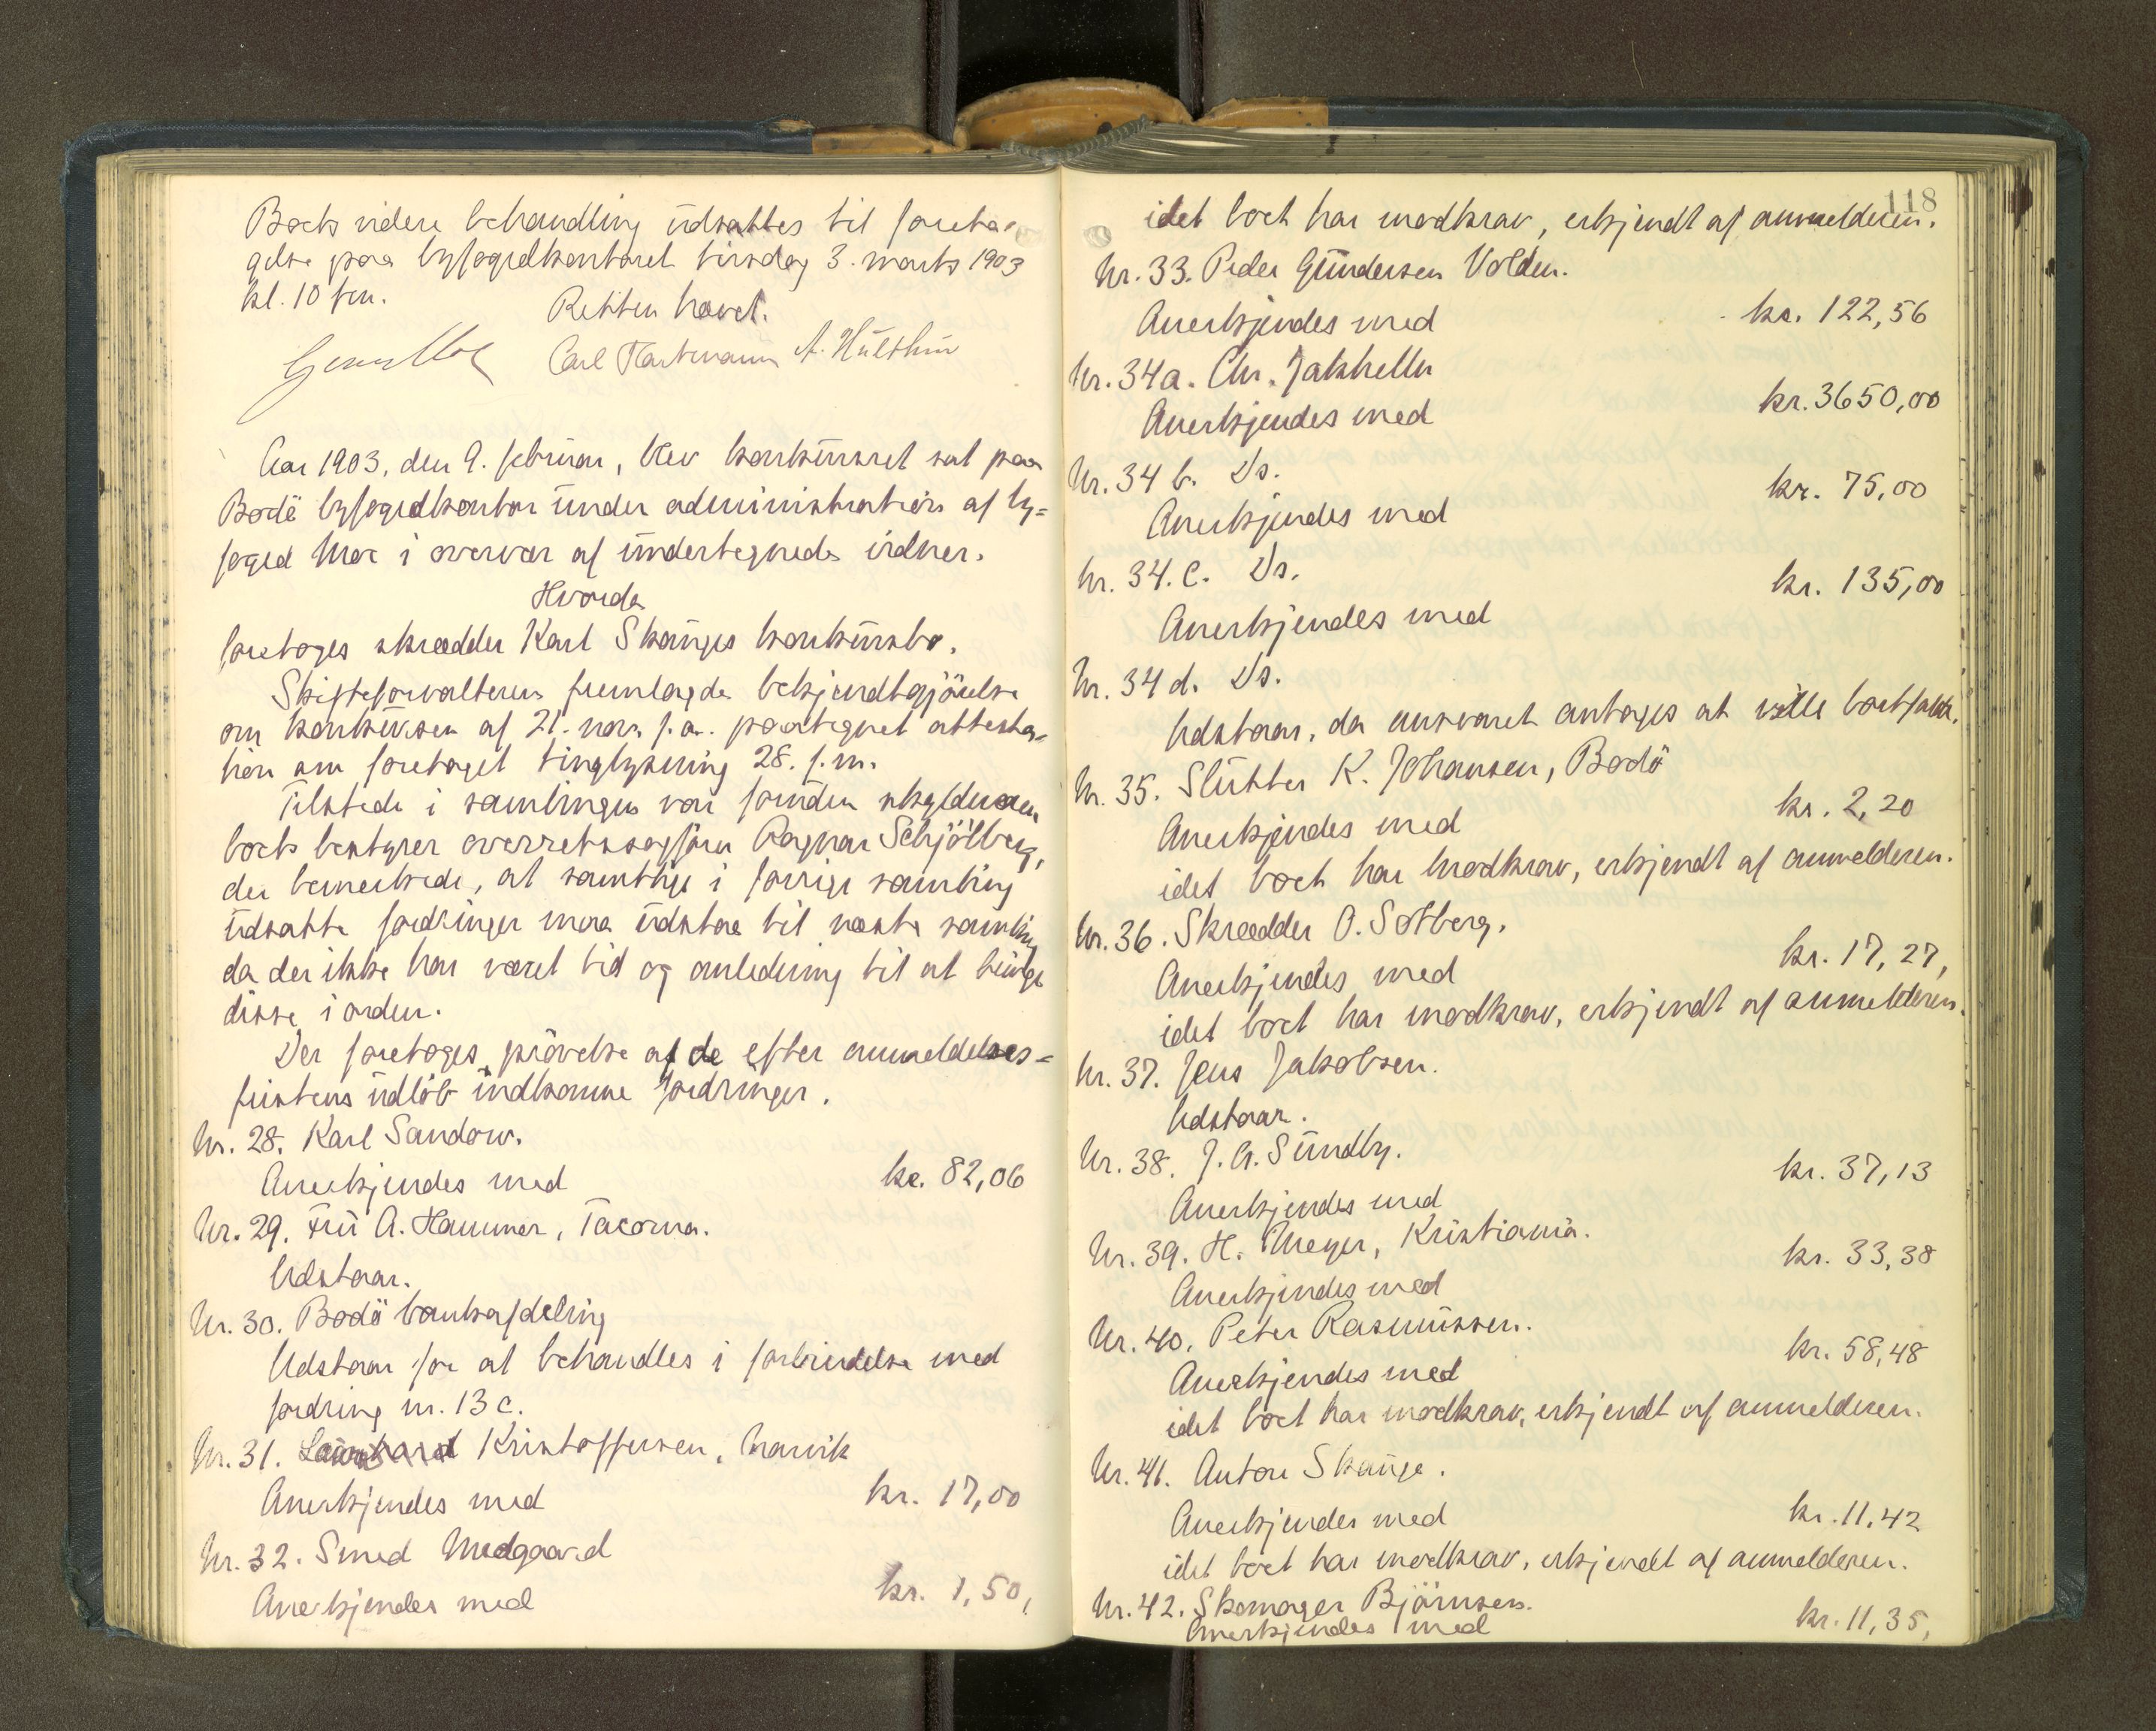 Boets videre behandling udsattes til foreta-
gelse paa byfogedkontoret tirsdag 3. marts 1903
kl. 10 fm.
Retten hævet.
Carl Hartmann A. Hulthin
Aar 1903, den 9. februar, blev konkursret sat paa
Bodö byfogedkontor under administration af by=
foged Moe i overvær af undertegnede vidner.
Hvorda
foretoges skrædder Karl Skauges konkursbo.
Skifteforvalteren fremlagde bekjendtgjörelse
om konkursen af 21. nov. f.a. paategnet attesta-
tion om foretaget tinglysning 28. f.m.
Tilstede i samlingen var foruden skyldneren
boets bestyrer overretssagförer Ragnar Schjölberg,
der bemerkede, at samtlige i forrige samling
udsatte fordringer maa udstaa til næste samling
da der ikke har været tid og anledning til at bringe
disse i orden.
Der foretoges prövelse af de efter anmeldelses=
fristens udlöb indkomne fordringer.
Nr. 28. Karl Sandow.
Anerkjendes med kr. 82,06
Nr. 29. Fru A. Hammer, Tacoma.
Udstaar.
Nr. 30. Bodö bankafdeling
Udstaar for at behandles i forbindelse med
fordring nr. 13 c.
Nr. 31. Kristoffersen, Narvik
Anerkjendes med kr. 17,00
Nr. 32. Smed Medgaard
Anerkjendes med kr. 1,50,
118
idet boet har modkrav, erkjendt af anmelderen.
Nr. 33. Peder Gundersen Volden.
Anerkjendes med kr. 122,56
Nr. 34a. Chr. Jakhelln
Anerkjendes med kr. 3650,00
Nr. 34 b. Ds.
Anerkjendes med kr. 75,00
Nr. 34. c. Ds.
Anerkjendes med kr. 135,00
Nr. 34 d. Ds.
Udstaar, da ansvaret antages at ville bortfalde.
Nr. 35. Slutter K. Johansen, Bodö
Anerkjendes med kr. 2,20
idet boet har modkrav, erkjendt af anmelderen.
Nr. 36. Skrædder O. Solberg.
Anerkjendes med kr. 17,27,
idet boet har modkrav, erkjendt af anmelderen.
Nr. 37. Jens Jakobsen.
Udstaar.
Nr. 38. J. A. Sundby.
Anerkjendes med kr. 37,13
Nr. 39. H. Meyer, Kristiania.
Anerkjendes med kr. 33,38
Nr. 40. Peter Rasmussen.
Anerkjendes med kr. 58,48
idet boet har modkrav, erkjendt af anmelderen.
Nr. 41. Anton Skauge.
Anerkjendes med kr. 11,42
idet boet har modkrav, erkjendt af anmelderen.
Nr. 42. Skomager Björnsen.
Anerkjendes med kr. 11,35,